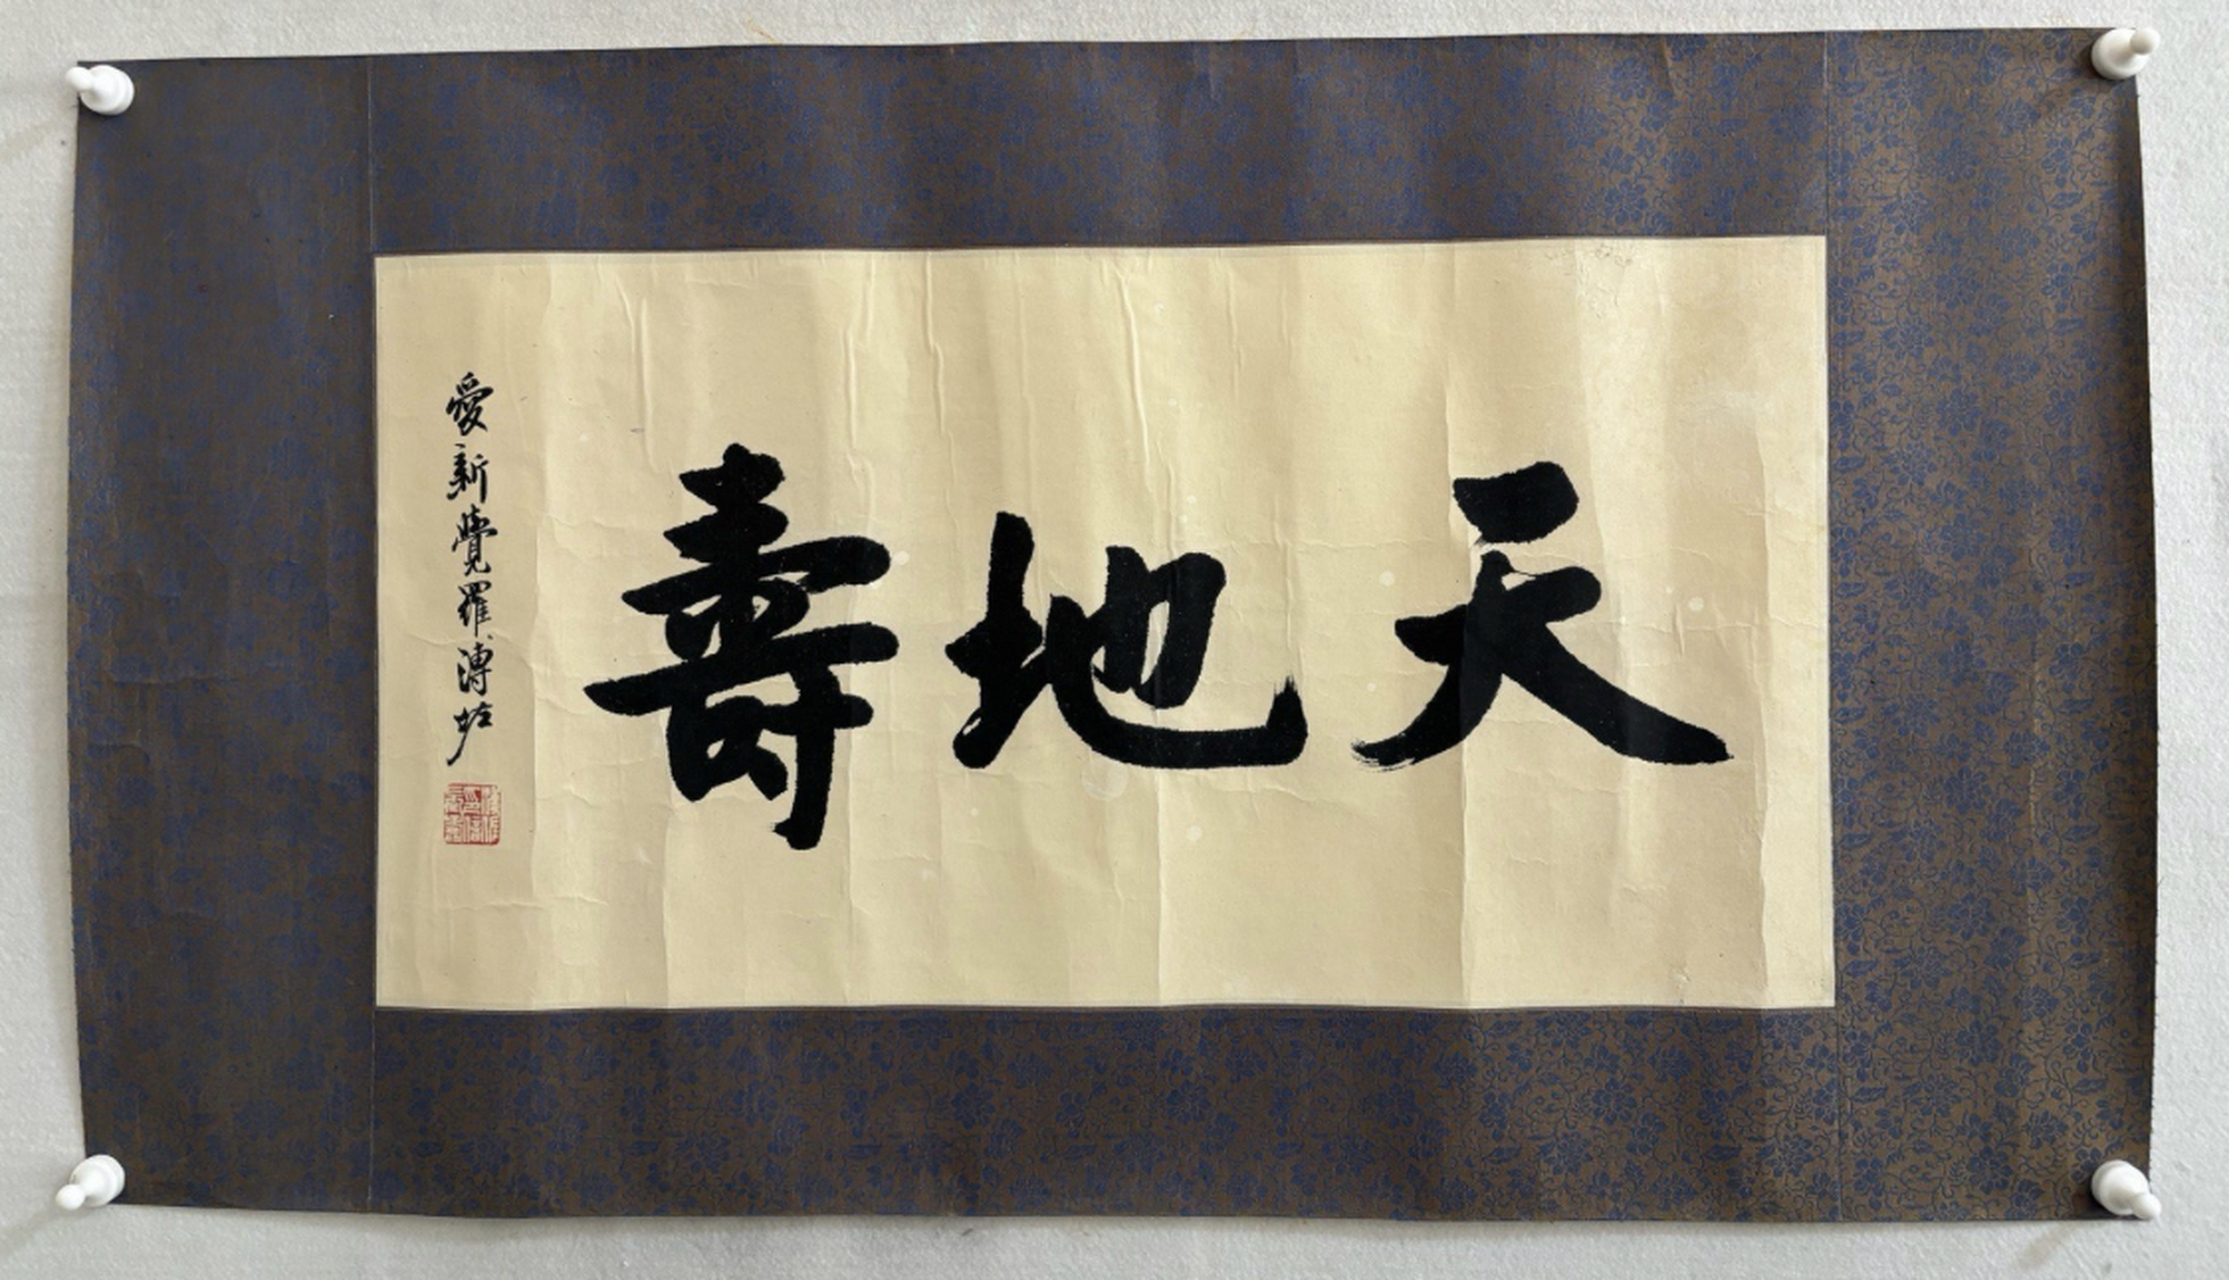 天地壽
愛新覺羅溥